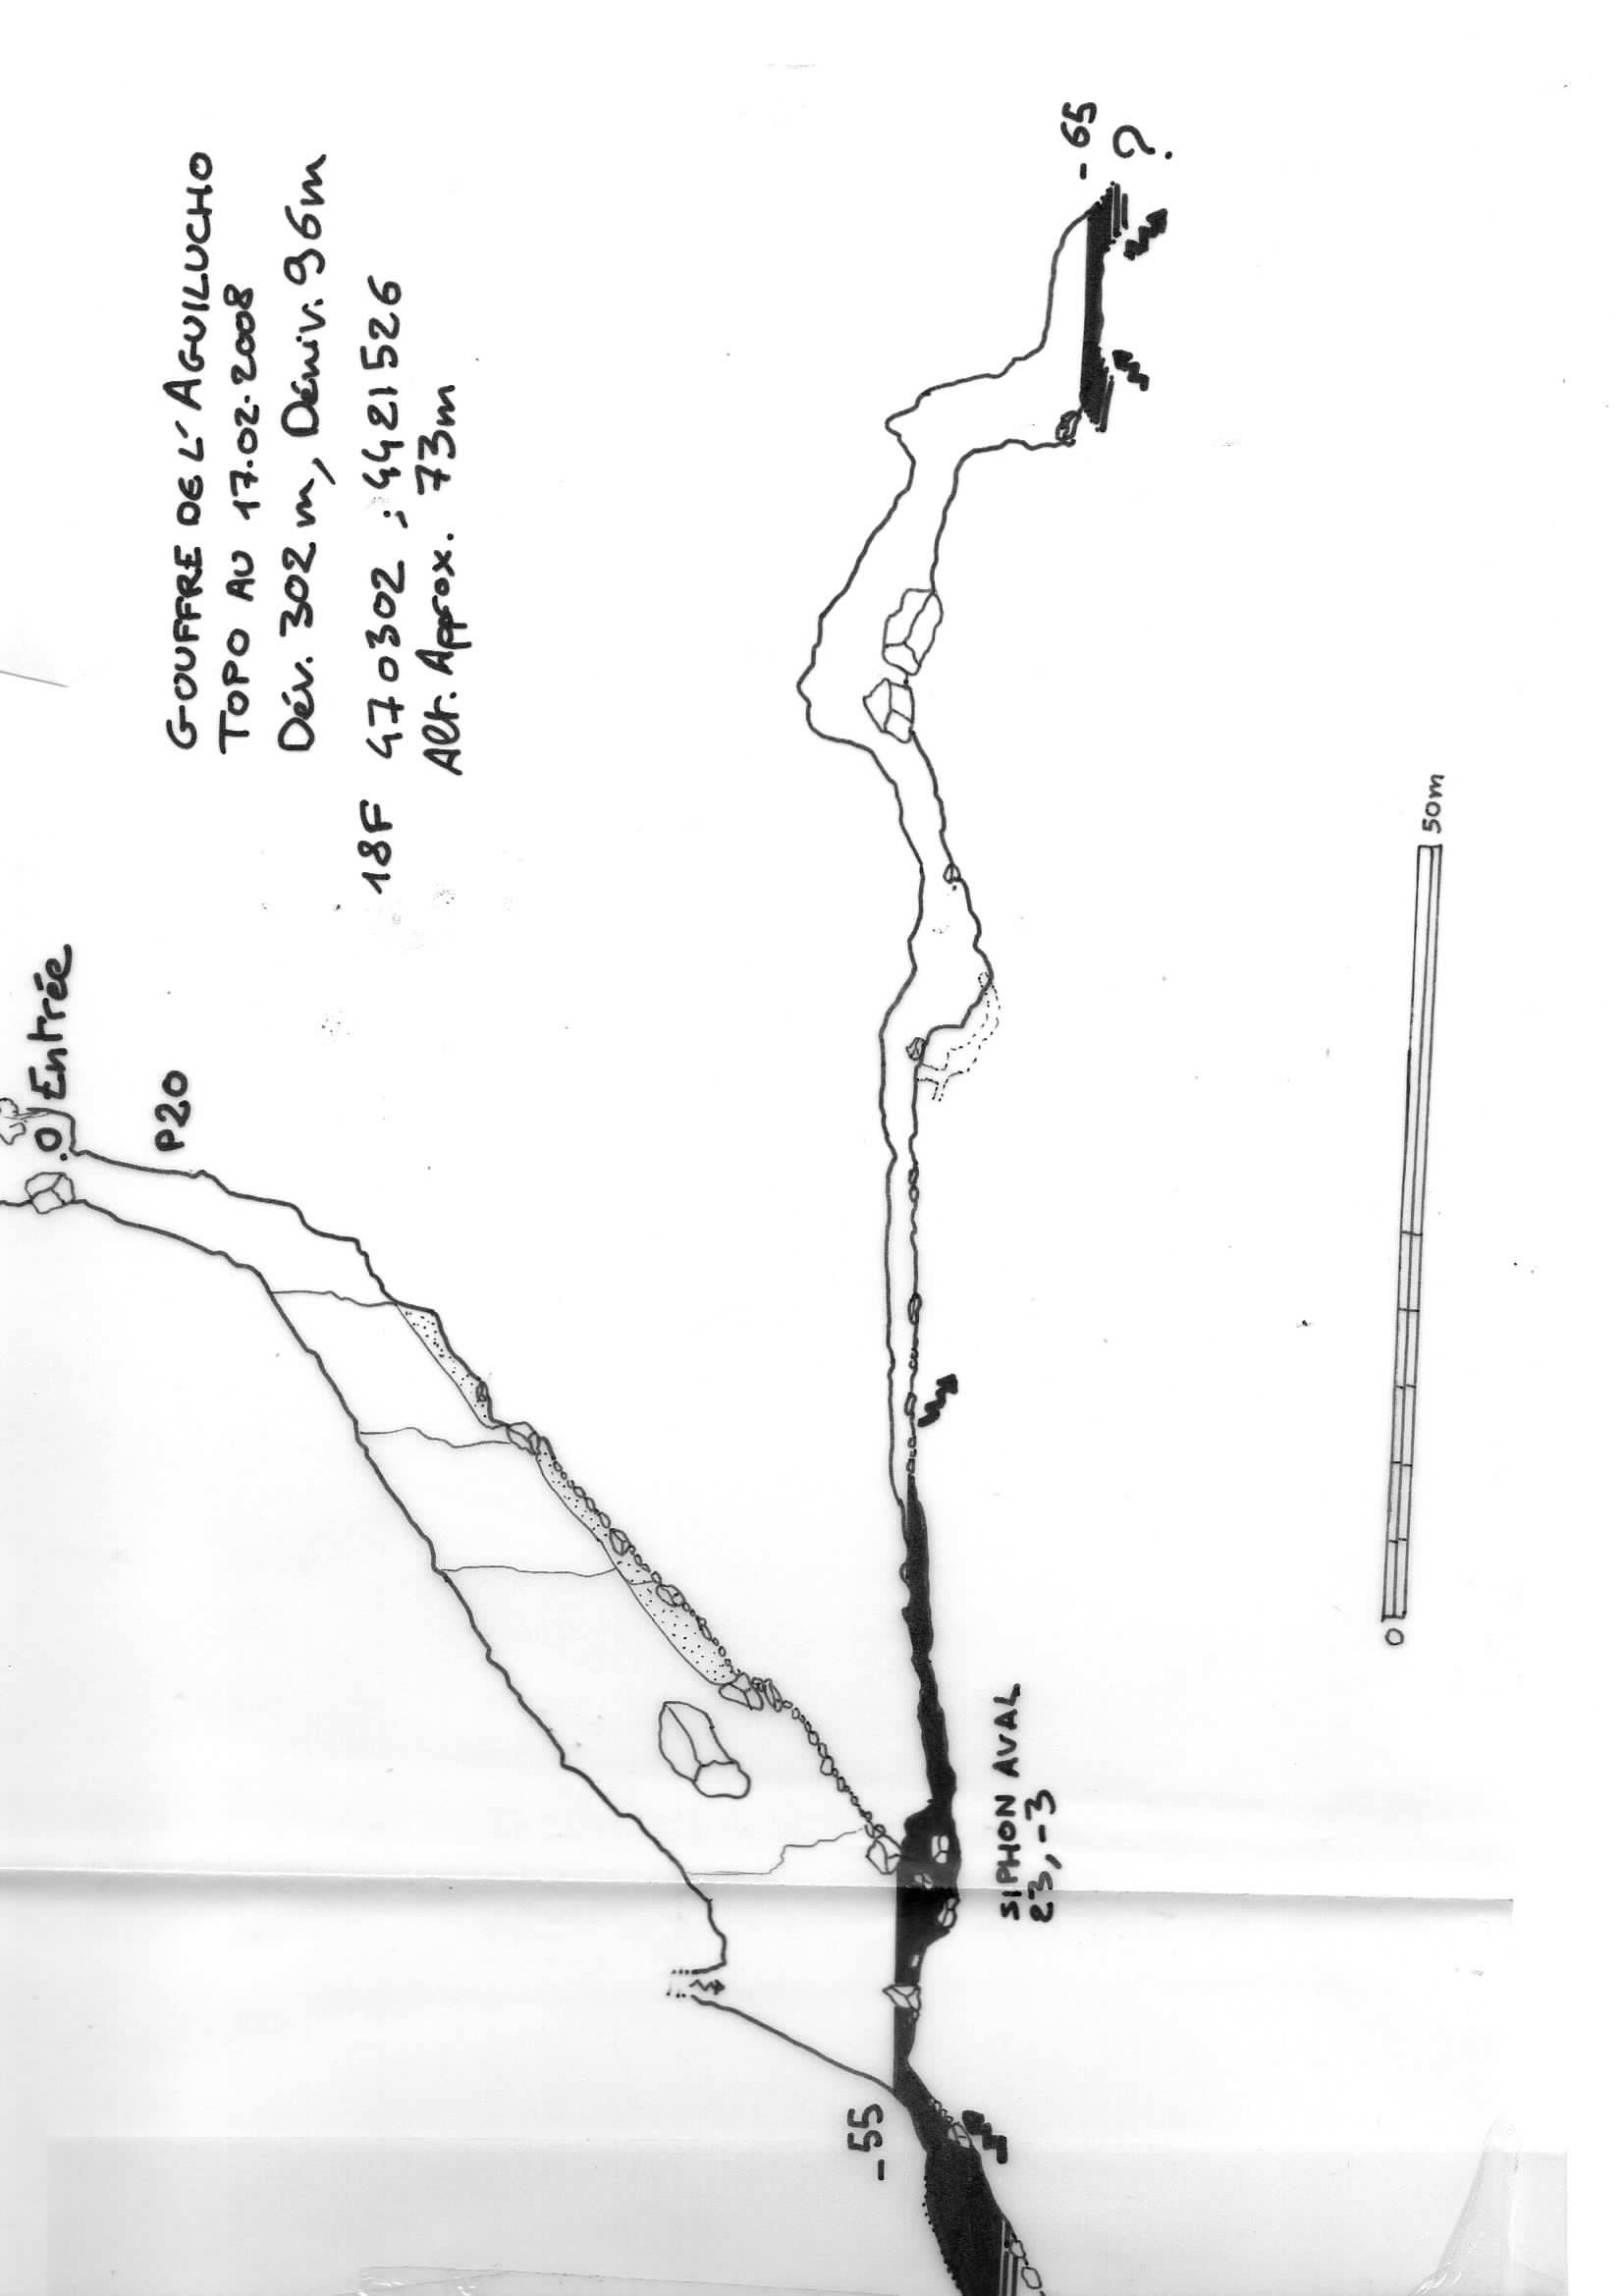 GOUFFRE DE L'AGUILUCHO
TOPO AU 17.02.2008
Dév. 302 m, Déniv. 96m
18F 470302 ; 4421526
Alt. Approx. 73m
.0 Entrée
P20
-65
?
-55
SIPHON AVAL
23, -3
0 50m